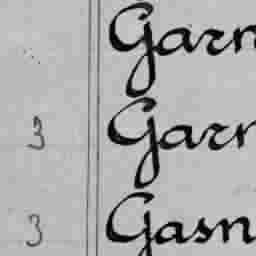 Garn
3 Garn
3 Gasn